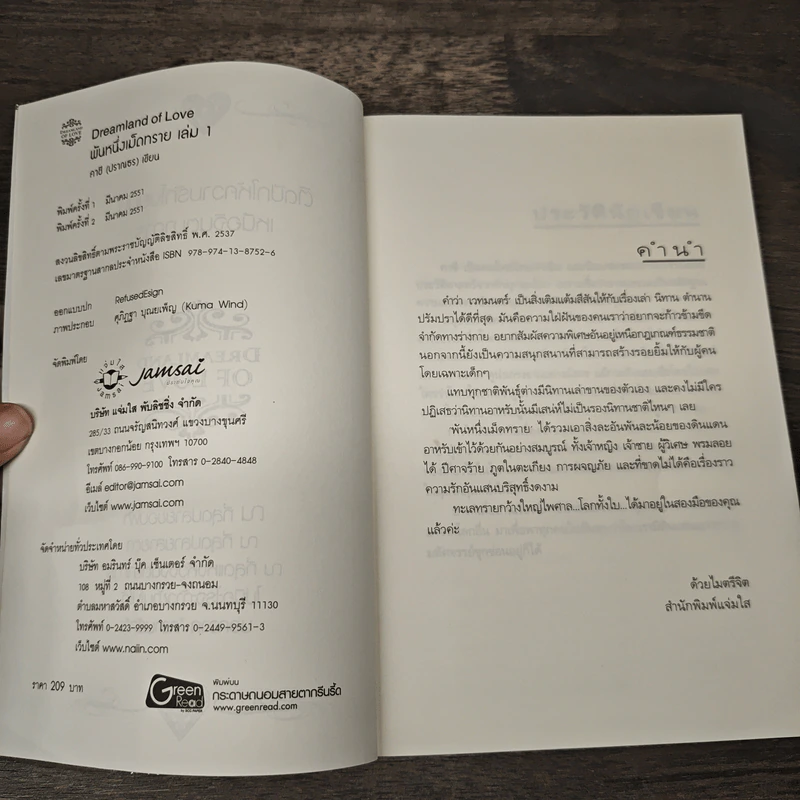 DREAMLAND
OF LOVE
Dreamland of Love
พันหนึ่งเม็ดทราย เล่ม 1
คาซี (ปราณธร) เขียน
พิมพ์ครั้งที่ 1 มีนาคม 2551
พิมพ์ครั้งที่ 2 มีนาคม 2551
สงวนลิขสิทธิ์ตามพระราชบัญญัติลิขสิทธิ์ พ.ศ. 2537
เลขมาตรฐานสากลประจำหนังสือ ISBN 978-974-13-8752-6
ออกแบบปก RefusedEsign
ภาพประกอบ ศุภิฏฐา บุณยเพ็ญ (Kuma Wind)
จัดพิมพ์โดย
แจ่มใส
jamsai
Jamsai
บริษัท แจ่มใส พับลิชชิ่ง จำกัด
285/33 ถนนจรัญสนิทวงศ์ แขวงบางขุนศรี
เขตบางกอกน้อย กรุงเทพฯ 10700
โทรศัพท์ 086-990-9100 โทรสาร 0-2840-4848
อีเมล์ editor@jamsai.com
เว็บไซต์ www.jamsai.com
จัดจำหน่ายทั่วประเทศโดย
บริษัท อมรินทร์ บุ๊ค เซ็นเตอร์ จำกัด
108 หมู่ที่ 2 ถนนบางกรวย-จงถนอม
ตำบลมหาสวัสดิ์ อำเภอบางกรวย จ.นนทบุรี 11130
โทรศัพท์ 0-2423-9999 โทรสาร 0-2449-9561-3
เว็บไซต์ www.naiin.com
ราคา 209 บาท
Green
Read
พิมพ์บน
กระดาษถนอมสายตากรีนรี้ด
www.greenread.com
คำนำ
คำว่า 'เวทมนตร์' เป็นสิ่งเติมแต้มสีสันให้กับเรื่องเล่า นิทาน ตำนาน
ปรัมปราได้ดีที่สุด มันคือความใฝ่ฝันของคนเราว่าอยากจะก้าวข้ามขีด
จำกัดทางร่างกาย อยากสัมผัสความพิเศษอันอยู่เหนือกฎเกณฑ์ธรรมชาติ
นอกจากนี้ยังเป็นความสนุกสนานที่สามารถสร้างรอยยิ้มให้กับผู้คน
โดยเฉพาะเด็กๆ
แทบทุกชาติพันธุ์ต่างมีนิทานเล่าขานของตัวเอง และคงไม่มีใคร
ปฏิเสธว่านิทานอาหรับนั้นมีเสน่ห์ไม่เป็นรองนิทานชาติไหนๆ เลย
'พันหนึ่งเม็ดทราย' ได้รวมเอาสิ่งละอันพันละน้อยของดินแดน
อาหรับเข้าไว้ด้วยกันอย่างสมบูรณ์ ทั้งเจ้าหญิง เจ้าชาย ผู้วิเศษ พรมลอย
ได้ ปีศาจร้าย ภูตในตะเกียง การผจญภัย และที่ขาดไม่ได้คือเรื่องราว
ความรักอันแสนบริสุทธิ์งดงาม
ทะเลทรายกว้างใหญ่ไพศาล...โลกทั้งใบ...ได้มาอยู่ในสองมือของคุณ
แล้วค่ะ
ด้วยไมตรีจิต
สำนักพิมพ์แจ่มใส